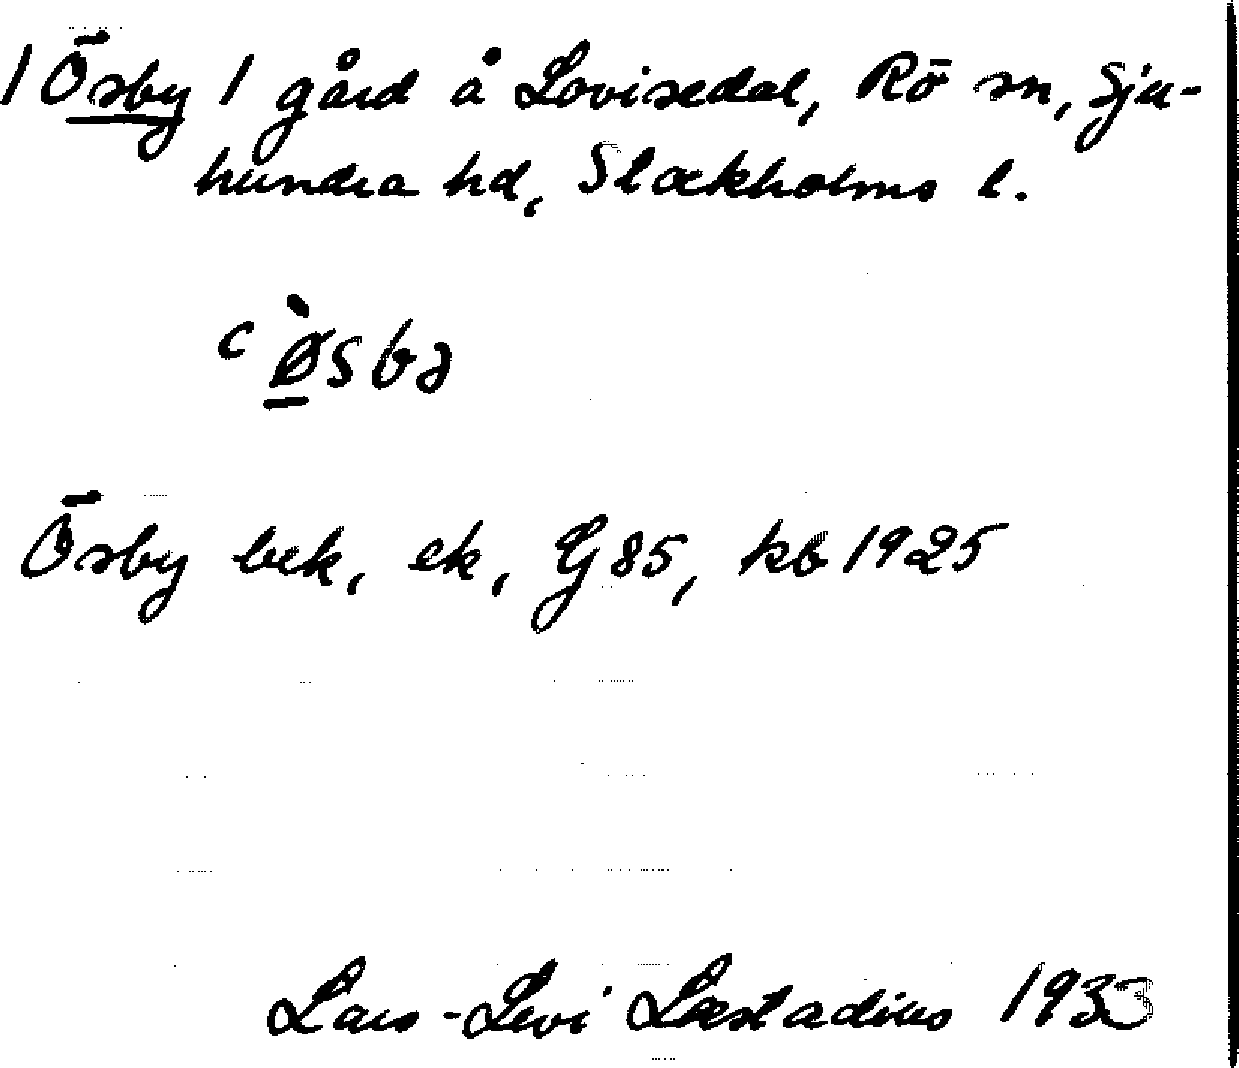 / Ösby / gård å Lovisedal, Rö sn, Sju-
hundra hd, Stockholms l.
c ø̀sbə
Ösby bek, ek, G 85, kb 1925
Lars-Levi Læstadius 1933